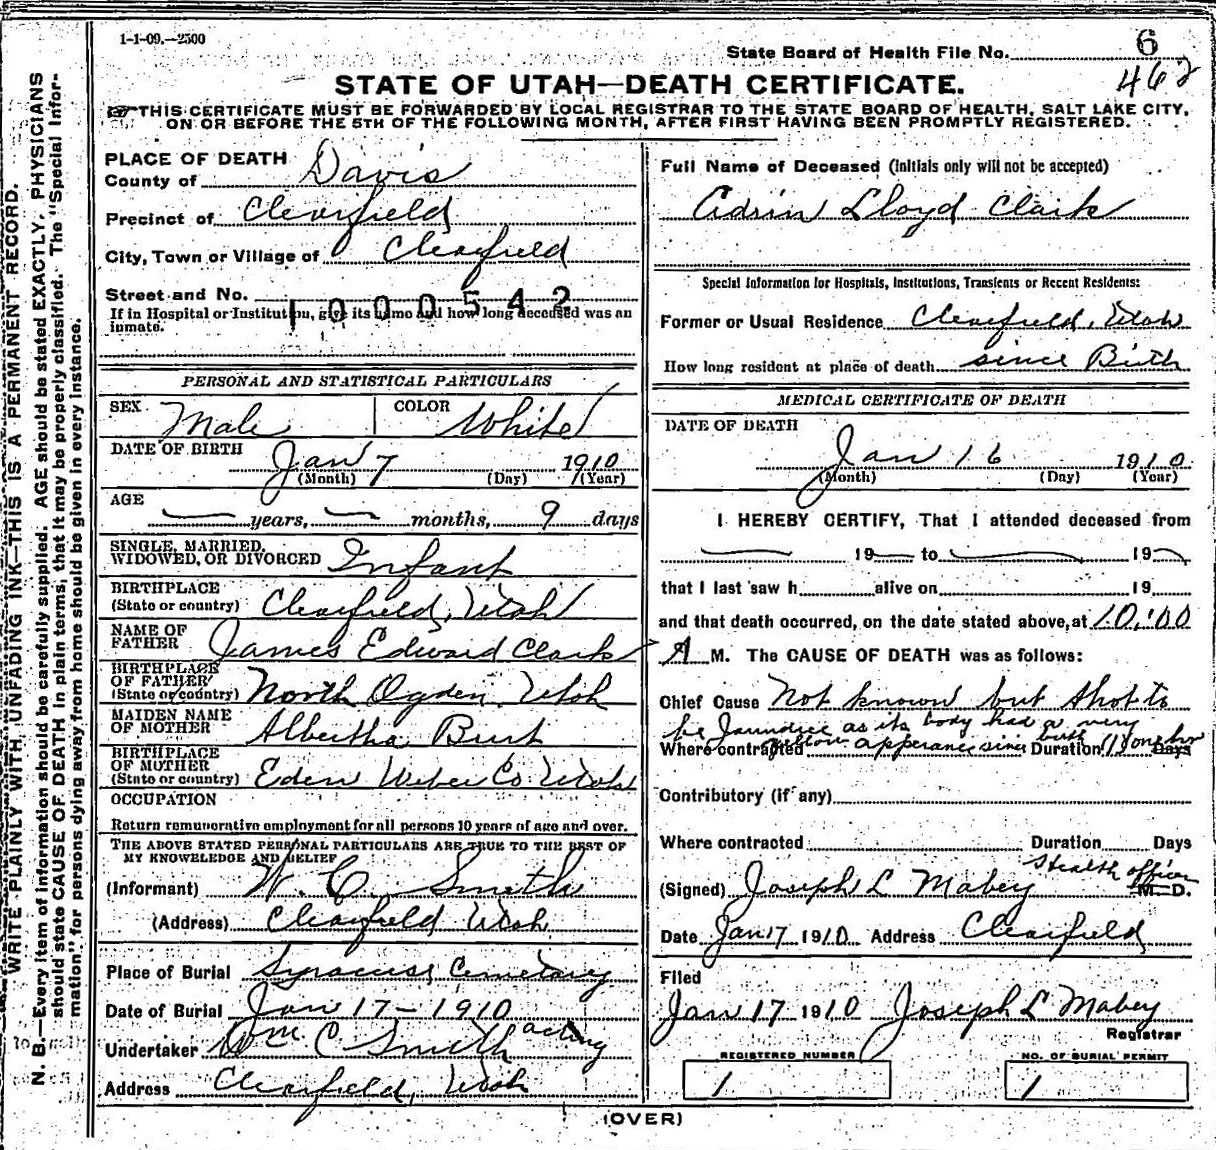 1-1-09.—2500
State Board of Health File No. 6
462
STATE OF UTAH—DEATH CERTIFICATE.
THIS CERTIFICATE MUST BE FORWARDED BY LOCAL REGISTRAR TO THE STATE BOARD OF HEALTH, SALT LAKE CITY,
ON OR BEFORE THE 5TH OF THE FOLLOWING MONTH, AFTER FIRST HAVING BEEN PROMPTLY REGISTERED.
WRITE PLAINLY WITH UNFADING INK—THIS IS A PERMANENT RECORD.
N. B.—Every item of information should be carefully supplied. AGE should be stated EXACTLY. PHYSICIANS
should state CAUSE OF DEATH in plain terms, that it may be properly classified. The "Special Infor-
mation" for persons dying away from home should be given in every instance.
PLACE OF DEATH
County of Davis
Precinct of Clearfield
City, Town or Village of Clearfield
Street and No.
1000542
If in Hospital or Institution, give its name and how long deceased was an
inmate.
PERSONAL AND STATISTICAL PARTICULARS
SEX Male COLOR White
DATE OF BIRTH Jan 7 1910
(Month) (Day) (Year)
AGE years, months, 9 days
SINGLE, MARRIED,
WIDOWED, OR DIVORCED Infant
BIRTHPLACE
(State or country) Clearfield, Utah
NAME OF
FATHER James Edward Clark
BIRTHPLACE
OF FATHER
(State or country) North Ogden Utah
MAIDEN NAME
OF MOTHER Albertha Burt
BIRTHPLACE
OF MOTHER
(State or country) Eden Weber Co. Utah
OCCUPATION
Return remunerative employment for all persons 10 years of age and over.
THE ABOVE STATED PERSONAL PARTICULARS ARE TRUE TO THE BEST OF
MY KNOWLEDGE AND BELIEF
(Informant) W. C. Smith
(Address) Clearfield Utah
Place of Burial Syracuse Cemetary
Date of Burial Jan 17-1910
Undertaker Wm C Smith acting
Address Clearfield, Utah
Full Name of Deceased (initials only will not be accepted)
Adrin Lloyd Clark
Special Information for Hospitals, Institutions, Transients or Recent Residents:
Former or Usual Residence Clearfield, Utah
How long resident at place of death since Birth
MEDICAL CERTIFICATE OF DEATH
DATE OF DEATH
Jan 16 1910
(Month) (Day) (Year)
I HEREBY CERTIFY, That I attended deceased from
19 to 19
that I last saw h alive on 19
and that death occurred, on the date stated above, at 10:00
A M. The CAUSE OF DEATH was as follows:
Chief Cause Not known but thot to
be Jaundice as its body had a very
yellow apperance since birth
Where contracted Duration one hr Days
Contributory (if any)
Where contracted Duration Days
Health officer
(Signed) Joseph L Mabey M. D.
Date Jan 17 1910 Address Clearfield
Filed
Jan 17 1910 Joseph L Mabey
Registrar
REGISTERED NUMBER
1
NO. OF BURIAL PERMIT
1
(OVER)